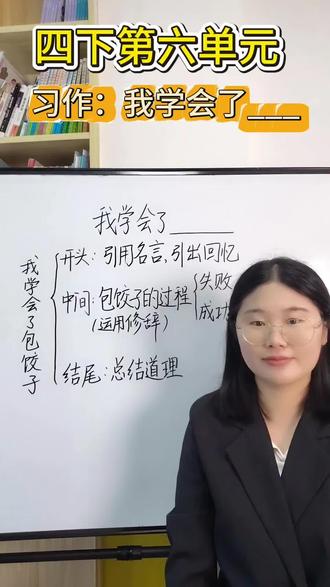 四下第六单元
习作：我学会了___
我学会了______
我学会了包饺子
开头：引用名言，引出回忆
中间：包饺子的过程
（运用修辞）
失败
成功
结尾：总结道理